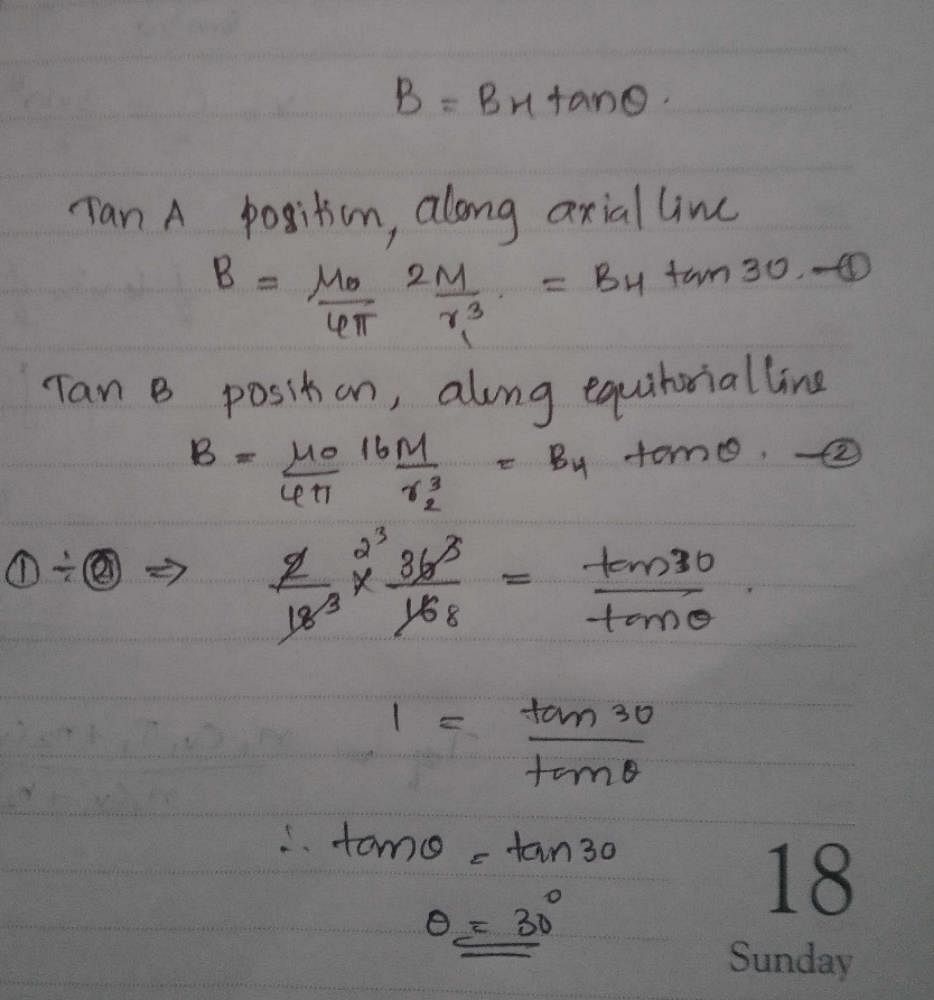 B = BH tanθ.
Tan A position, along axial line
B = μ0/4π 2M/r₁³ = BH tan 30. —①
Tan B position, along equitorial line
B = μ0/4π 16M/r₂³ = BH tanθ. —②
① ÷ ② ⇒ 2/18³ × 2³ 36³/16 8 = tan30/tanθ.
1 = tan 30/tanθ
∴ tanθ = tan 30
θ = 30°
18
Sunday